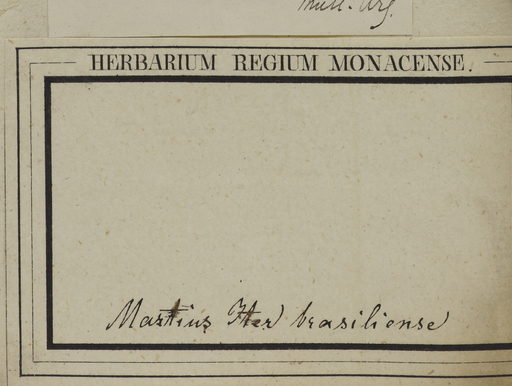 Müll. Arg.
HERBARIUM REGIUM MONACENSE.
Martius Iter brasiliense